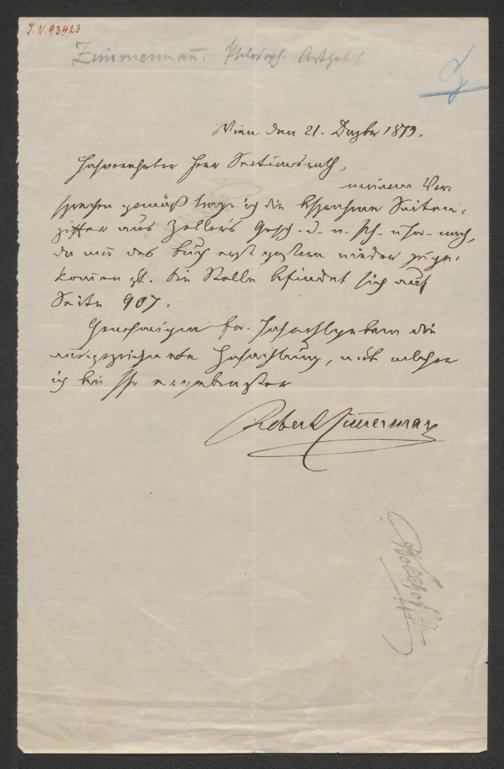 J.N. 93423
Zimmermann. Philosoph. Aesthet
Wien den 21. Dezbr 1879.
Hochverehrter Herr Sectionsrath,
meinem Ver-
sprechen gemäß trage ich die Seiten-
ziffer aus Zeller's Gesch. d. nach,
da mir das Buch erst gestern wieder zuge-
kommen ist. Die Stelle befindet sich auf
Seite 907.
Genehmigen die
ausgezeichnete Hochachtung, mit welcher
ich bin Ihr ergebenster
Robert Zimmermann